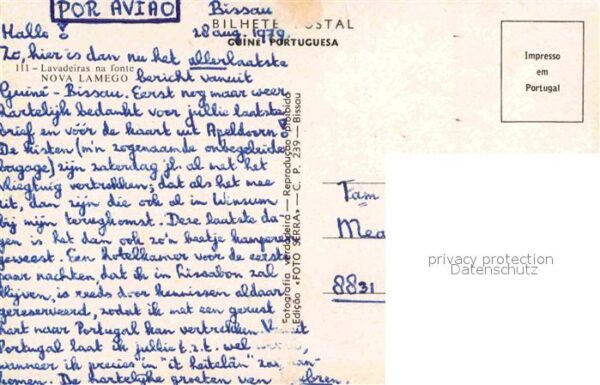 POR AVIÃO
Bissau
BILHETE POSTAL
28 aug. 1979
GUINÉ PORTUGUESA
Hallo!
Zo, hier is dan nu het allerlaatste
111 – Lavadeiras na fonte
NOVA LAMEGO
bericht vanuit
Guiné-Bissau. Eerst nog maar weer
hartelijk bedankt voor jullie laatste
brief en vóór de kaart uit Apeldoorn!
De kisten (m'n zogenaamde onbegeleide
bagage) zijn zaterdag jl. al met het
vliegtuig vertrokken; dat als het mee
zit, dan zijn die ook al in Winsum
bij mijn terugkomst. Deze laatste da-
gen is het dan ook zo'n beetje kamperen
geweest. Een hotelkamer voor de eerste
paar nachten dat ik in Lissabon zal
blijven, is reeds door kennissen aldaar
gereserveerd, zodat ik met een gerust
hart naar Portugal kan vertrekken. Vanuit
Portugal laat ik jullie t.z.t. wel
wanneer ik precies in "it heitelân" zal aan-
komen. De hartelijke groeten van
Fotografia verdadeira — Reprodução proibida
Edição «FOTO SERRA» — C. P. 239 — Bissau
Impresso
em
Portugal
Fam
Mea
8831
privacy protection
Datenschutz